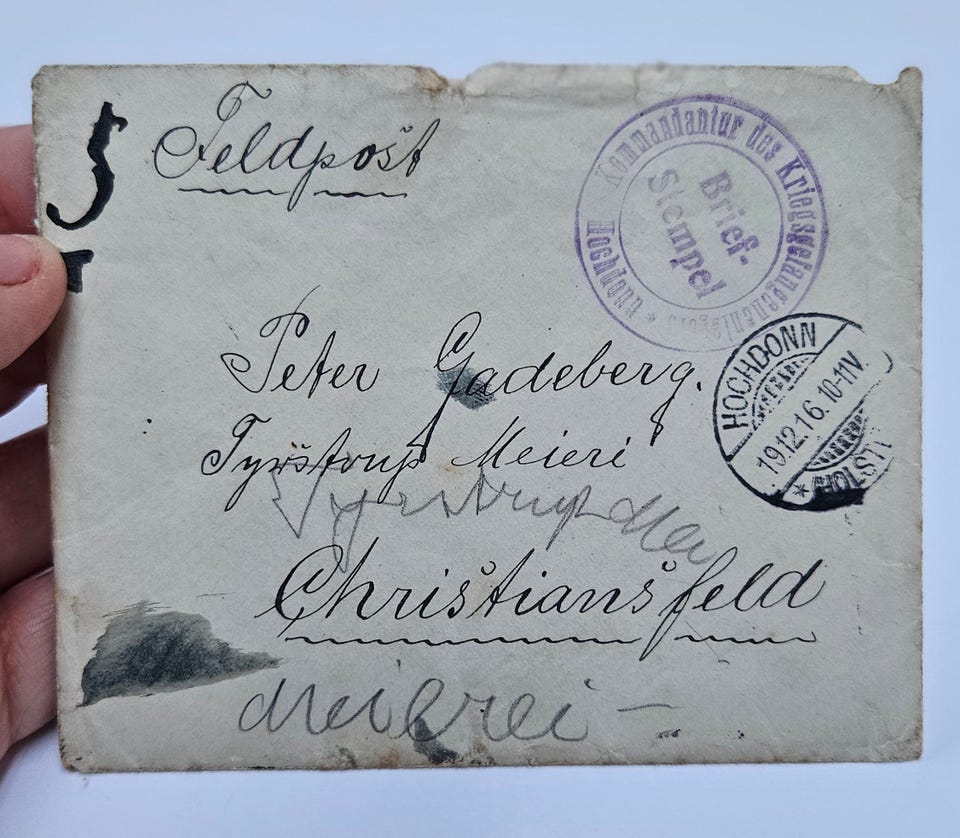 Feldpost
Kommandantur des Kriegsgefangenenlagers
Hochdonn *
Brief-
Stempel
HOCHDONN
19.12.16.10-11V.
* (HOLST)
Peter Gadeberg.
Tyrstrup Meieri
Tyrstrup Mei
Christiansfeld
Meierei -